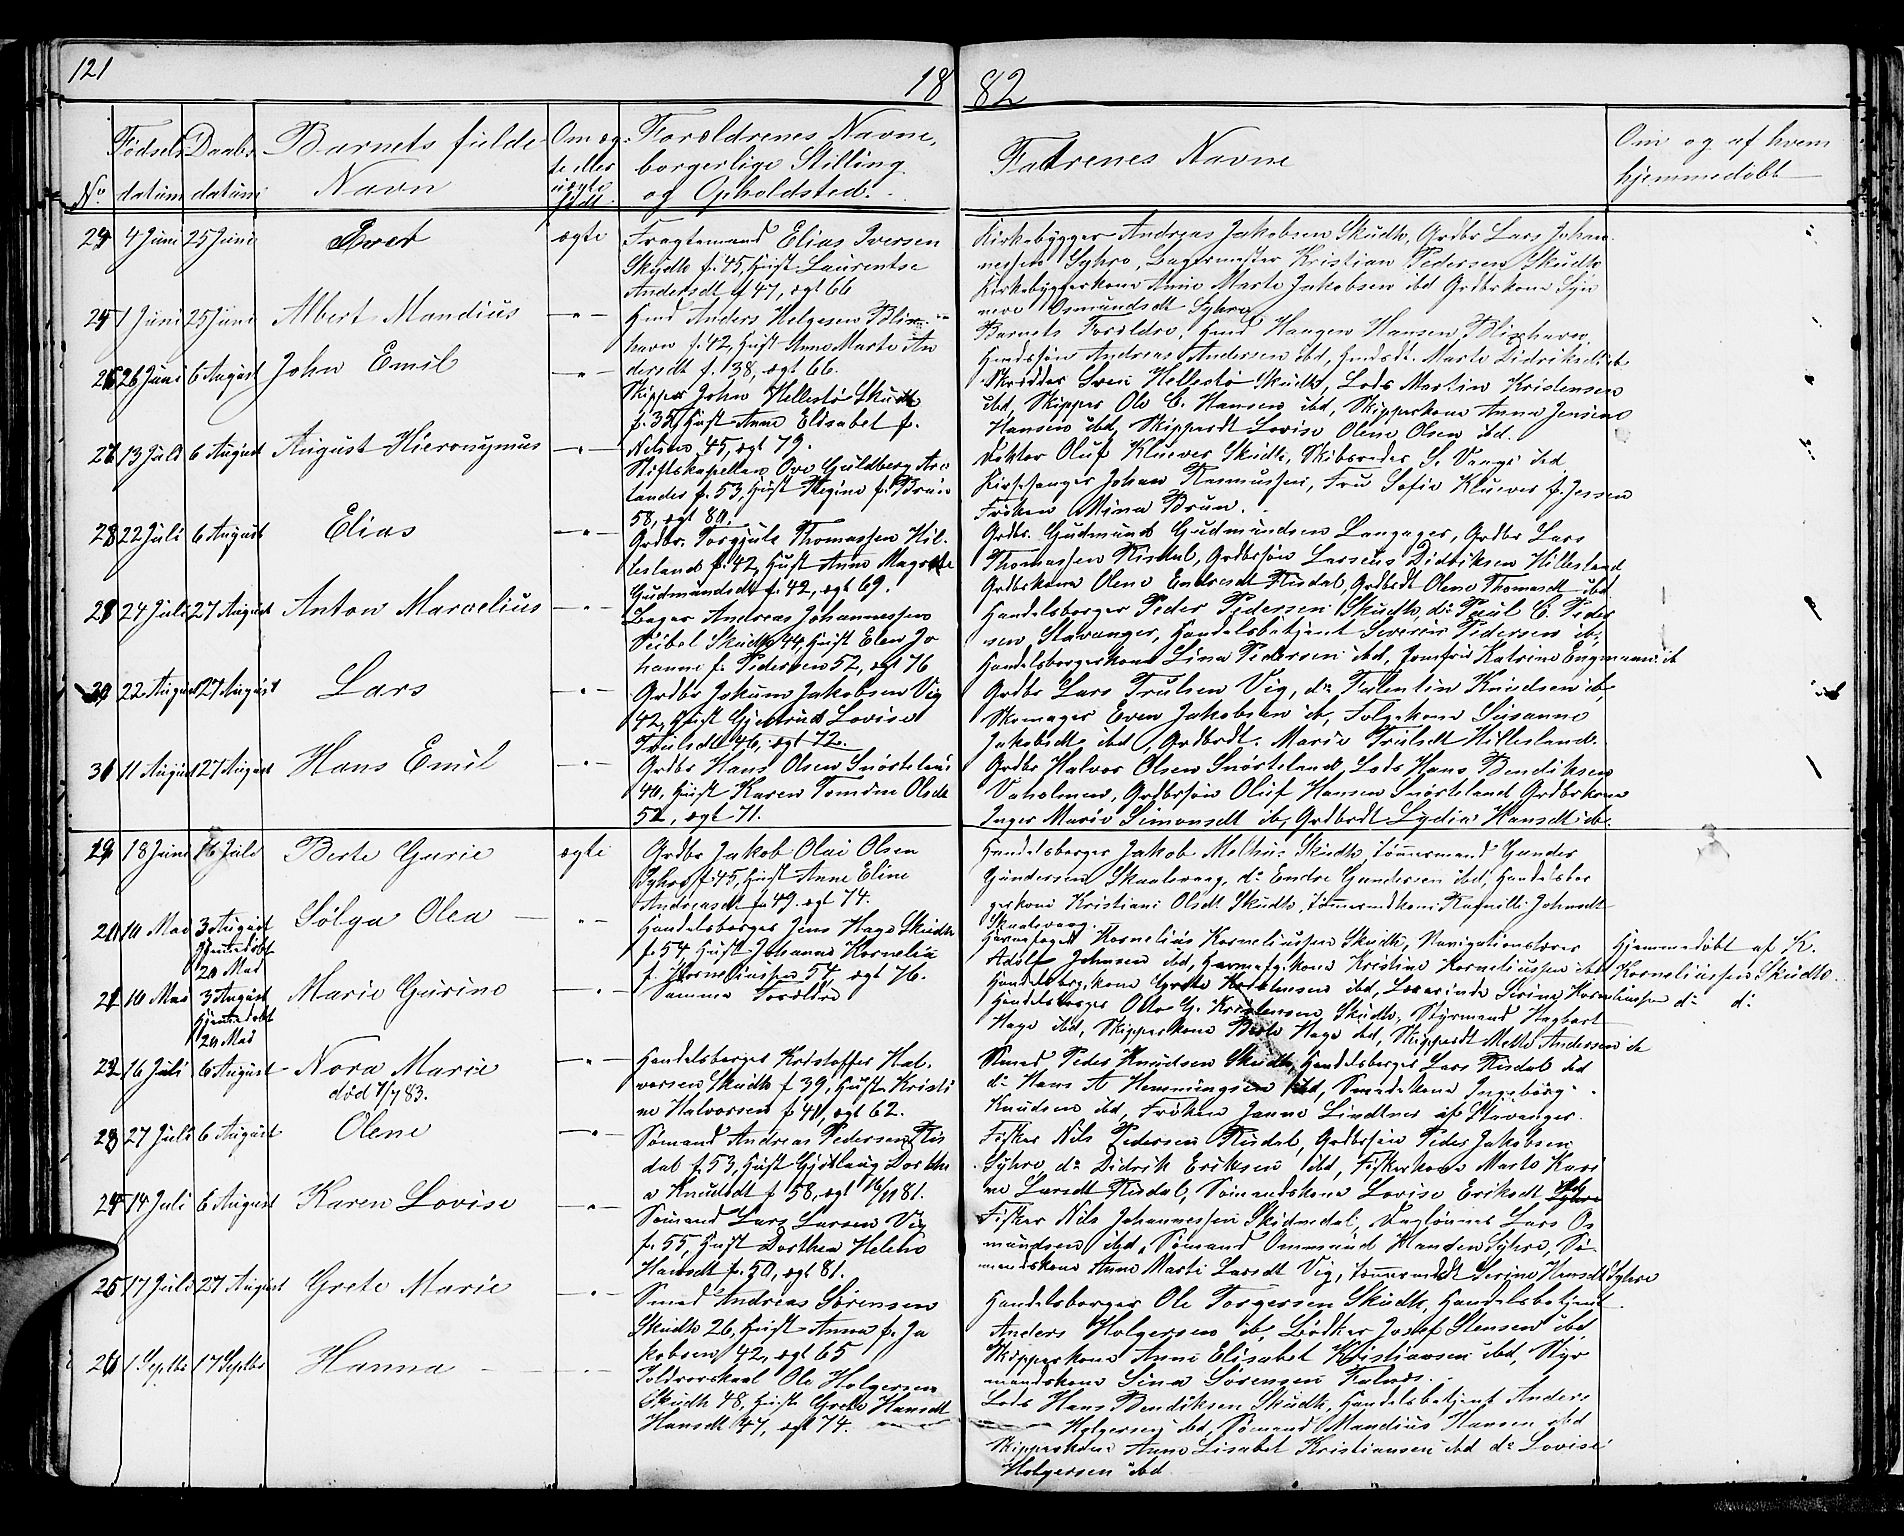 121
18 82
No
Fødsels datum
Daabs datum
Barnets fulde Navn
Om ægte eller uægte født
Forældrenes Navne, borgerlige Stilling og Opholdsted.
Fadrenes Navne
Om og af hvem hjemmedøbt
24 4 Juni 25 Juni Iver ægte
Fragtemand Elias Iversen
Skudh f. 45, Hust Laurentse
Andersdt f 47, ægt 66
Kirkebygger Andreas Jakobsen Skudh, Grdbr Lars Johan
nessen Syhre, Bagermester Kristian Pedersen Skudh
Kirkebyggerkone Anne Marte Jakobsen ibd Grdbrkone Syn
neve Osmundsdt Syhre
25 1 Juni 25 Juni Albert Mandius —"—
Hmd Anders Helgesen Blix
havn f. 42, Hust Anne Marte An
dersdt f. 38, ægt 66.
Barnets Forældre, Hmd Haagen Hansen Blixhavn,
Hmdssøn Andreas Andersen ibd, Hmdsdt. Marte Didriksdt ib
26 26 Juni 6 August John Emil —"—
Skipper John Hellestø Skudh
f. 35, Hust Anne Elisabet f.
Nilsen 45, ægt 79.
Skrædder Sven Hellestø Skudh, Lods Martin Kristensen
ibd, Skipper Ole C. Hansen ibd, Skipperkone Anna Jensine
Hansen ibd, Skipperdt Lovise Olene Olsen ibd.
27 13 Juli 6 August August Hieronymus —"—
Stiftskapellan Ove Guldberg Are
lander f. 53, Hust Regine f. Bruun
58, ægt 80.
Doktor Oluf Kluever Skudh, Skibsreder S. Vaage ibd
Kirkesanger Johan Rasmussen, Fru Sofie Kluever f. Jessen
Frøken Mina Bruun.
28 22 Juli 6 August Elias —"—
Grdbr. Torgjuls Thomassen Hil-
lesland f. 42, Hust Anne Magrete
Gudmundsdt f. 42, ægt 69.
Grdbr. Gudmund Gudmundsen Langager, Grdbr Lars
Thomassen Risdal, Grdbrsøn Larseus Didriksen Hillesland
Grdbrkone Olene Endresdt Risdal, Grdbrdt Olene Thomasdt ibd
29 24 Juli 27 August Anton Marselius —"—
Bager Andreas Johannessen
Veibel Skudh 44, Hust Elen Jo
hanne f. Pedersen 52, ægt 76
Handelsborger Peder Pedersen Skudh, do Paul C. Peder
sen, Stavanger, Handelsbetjent Severin Pedersen ib,
Handelsborgerkone Lina Pedersen ibd, Jomfru Katrine Engmann ib
30 22 August 27 August Lars —"—
Grdbr Jakum Jakobsen Vig
42, Hust Gjertrud Lovise
Trulsdt 46, ægt 72.
Grdbr Lars Trulsen Vig, do Falentin Knudsen ib,
Skomager Even Jakobsen ib, Følgekone Susanne
Jakobsdt ibd, Grdbrdt. Marie Trulsdt Hillesland.
31 11 August 27 August Hans Emil —"—
Grdbr Hans Olsen Snørteland
40, Hust Karen Tomine Olsdt
51, ægt 71.
Grdbr Halvor Olsen Snørteland, Lods Hans Bendiksen
Vaholmen, Grdbrsøn Oluf Hansen Snørteland Grdbrkone
Inger Marie Simonsdt ib, Grdbrdt Lydia Hansdt ib.
19 18 Juni 16 Juli Berte Gurie ægte
Grdbr Jakob Olai Olsen
Syhre f. 45, Hust Anne Eline
Andreasdt f. 49. ægt 74.
Handelsborger Jakob Melhus Skudh, Tømmermand Gunder
Gundersen Skaalevaag, do Endre Gundersen ibd, Handelsbor
gerkone Kristiane Olsdt Skudh, Tømmermdkone Ragnille Johnsdt
Skaalevaag.
20 10 Mai 3 August Hjemmedøbt 20 Mai Sølga Olea —"—
Handelsborger Jens Hage Skudh
f. 54, Hust Johanne Kornelia
f. Korneliussen 54, ægt 76.
Havnefoged Kornelius Korneliussen Skudh, Navigationslærer
Adolf Johnsen ibd, Havnefg.kone Kristine Korneliussen ibd
Handelsbrg.kone Grete Kristensen ibd, Lærerinde Serine Korneliussen
Hjemmedøbt af K.
Korneliussen Skudh.
21 10 Mai 3 August Hjemmedøbt 20 Mai Marie Gurine —"—
Samme Forældre
Handelsborger Otto G. Kristensen Skudh, Styrmand Hagbart
Hage ibd, Skipperkone Berte Hage ibd, Skipperdt Mette Andersen ib
do do
22 16 Juli 6 August Nora Marie —"—
død 7/7 83.
Handelsborger Kristoffer Hal-
vorsen Skudh f 39, Hust Kristi
ne Halvorsen f 41, ægt 62.
Smed Peder Knudsen Skudh, Handelsborger Lars Risdal ibd
do Hans A Hemmingsen ibd, Smedekone Ingeborg
Knudsen ibd, Frøken Janne Lindtner af Stavanger.
23 27 Juli 6 August Olene —"—
Sømand Andreas Pedersen Ris
dal f. 53, Hust Gjertlaug Dorthe
a Knudsdt f 58, ægt 16/11 81.
Fisker Nils Pedersen Risdal, Grdbrsøn Peder Jakobsen
Syhre, do Didrik Eriksen ibd, Fiskerkone Marte Kari
ne Larsdt Risdal, Sømandskone Lovise Eriksdt
24 14 Juli 6 August Karen Lovise —"—
Sømand Lars Larsen Vig
f. 55, Hust Dorthea Helene
Hansdt f. 50, ægt 81.
Fisker Nils Johannessen Skudnedal, Daglønner Lars Os
mundsen ibd, Sømand Ommund Hansen Syhre, Sø-
mandskone Anne Marti Larsdt Vig, Tømmermdt Serine Hansdt Syhre
25 17 Juli 27 August Grete Marie —"—
Smed Andreas Sørensen
Skudh 26, Hust Anna f. Ja
kobsen 42, ægt 65
Handelsborger Ole Torgersen Skudh, Handelsbetjent
Anders Holgersen ib, Bødker Josef Stensen ibd
Skipperkone Anne Elisabet Kristiansen ibd, Styr
mandskone Sina Sørensen Falnes.
26 1 Septbr 17 Septbr Hanna —"—
Toldroerskarl Ole Holgersen
Skudh 48, Hust Grete Hansdt
Hansdt 47, ægt 74.
Lods Hans Bendiksen Skudh, Handelsbetjent Anders
Holgersen ibd, Sømand Mandius Hansen ibd
Skipperkone Anne Lisabet Kristiansen ibd do Lovise
Holgersen ibd